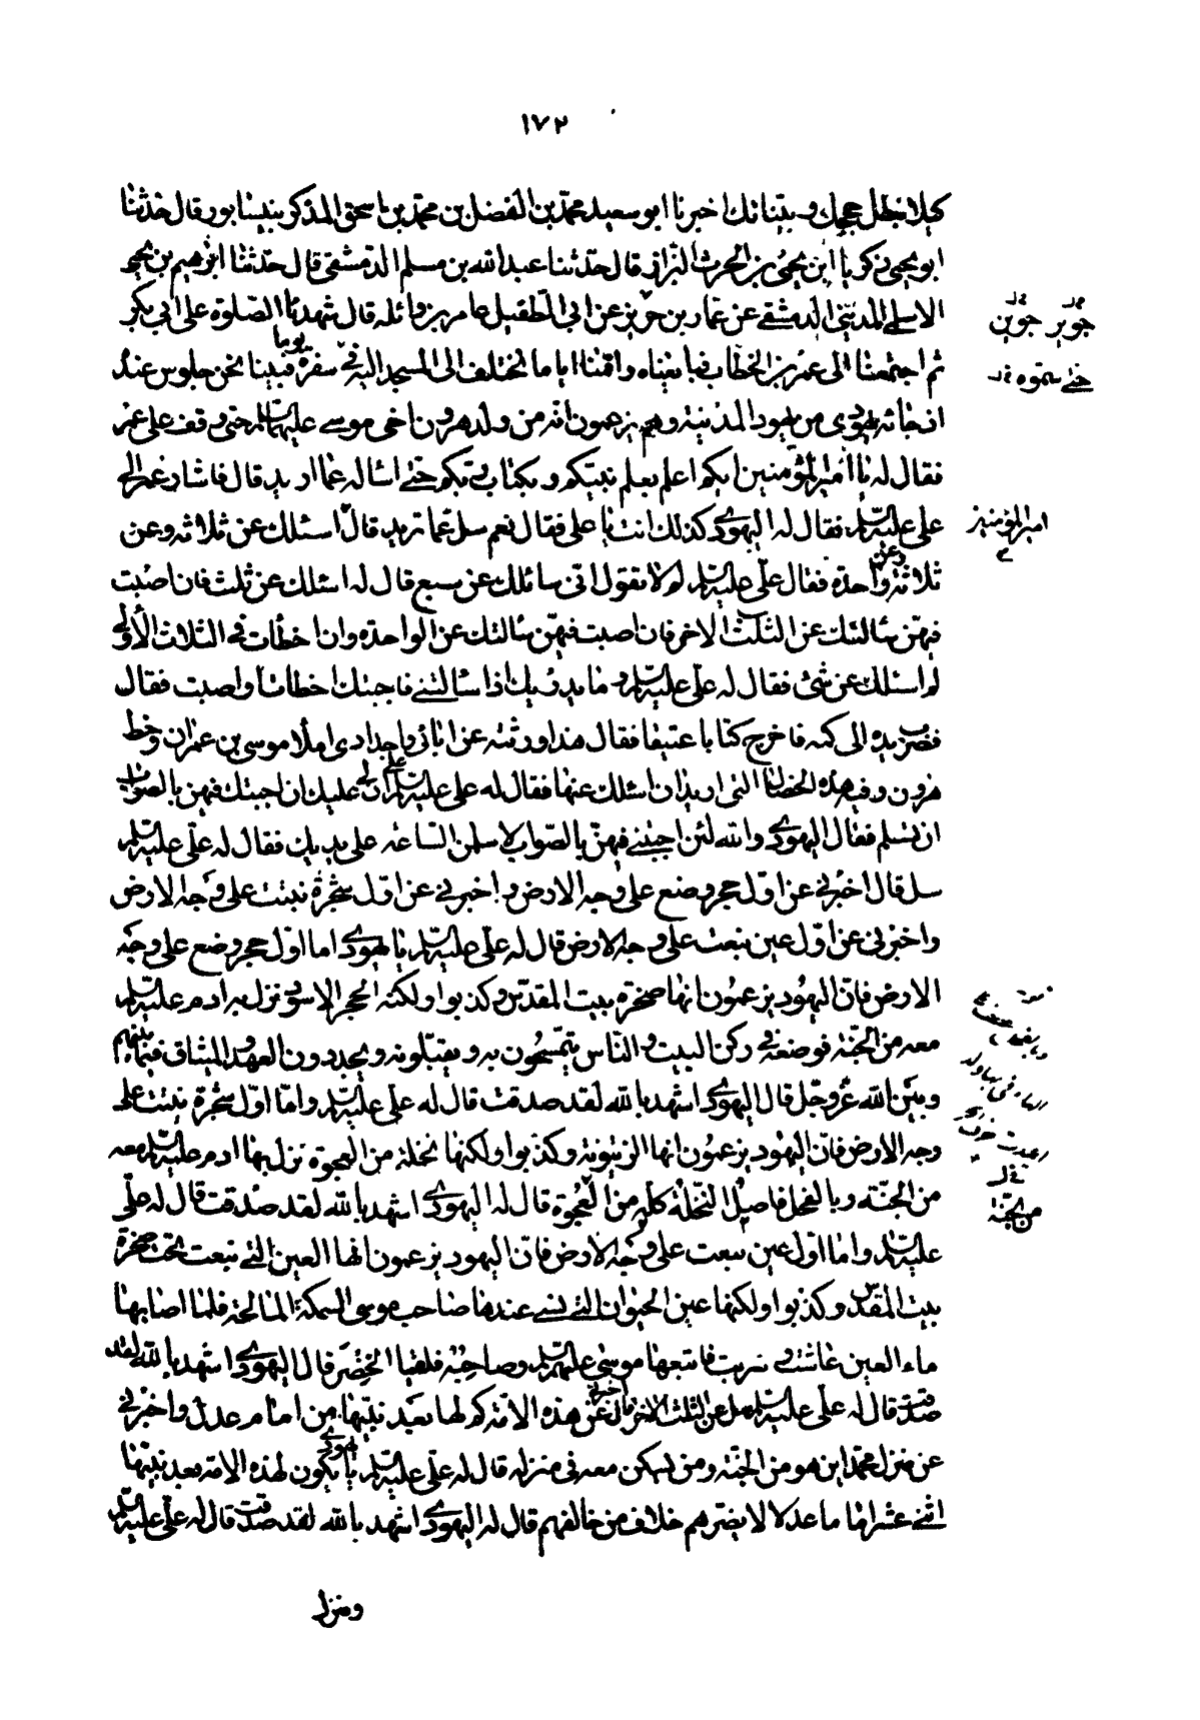 ١٧٢
كيلا تبطل حججك وبيّناتك اخبرنا ابو سعيد محمّد بن الفضل بن محمّد بن اسحق المذكر بنيسابور قال حدثنا
ابو يحيى زكريا ابن يحيى بن الحرث البزاز قال حدّثنا عبد الله بن مسلم الدمشقى قال حدّثنا ابرهيم بن يحيى
الاسلمى المدينى الدمشقى عن عمار بن جوين عن ابى الطفيل عامر بن واثله قال شهدنا الصلوة على ابى بكر
ثم اجتمعنا الى عمر بن الخطاب فبايعناه واقمنا اياما نختلف الى المسجد اليه فبينا نحن جلوس عنده
يوما
اذ جائه يهودى من يهود المدينة وهم يزعمون انه من ولد هرون اخى موسى عليهما السلم حتى وقف على عمر
فقال له يا امير المؤمنين ايكم اعلم بعلم نبيكم وبكتاب ربكم حتى اسأله عما اريد قال فاشار عمر الى
على عليه السلم فقال له اليهودى كذلك انت يا على فقال نعم سل عما تريد قال اسئلك عن ثلاثه وعن
ثلاثة وعن واحدة فقال علىّ عليه السلم لم لا تقول انى سائلك عن سبع قال له اسئلك عن ثلث فان اصبت
فيهنّ سالتك عن الثلث الاخر فان اصبت فيهنّ سالتك عن الواحدة وان اخطأت فى الثلاث الأولى
لم اسئلك عن شئ فقال له علىّ عليه السلم وما يدريك اذا سالتنى فاجبتك اخطات او اصبت فقال
فضرب يده الى كمه فاخرج كتابا عتيقا فقال هذا ورثته عن ابائى واجدادى املاء موسى بن عمران وخط
هرون وفيه هذه الخصال التى اريد ان اسئلك عنها فقال له على عليه السلم ان لى عليك ان اجبتك فيهن بالصواب
ان تسلم فقال اليهودى والله لئن اجبتنى فيهنّ بالصواب لاسلمن الساعه على يديك فقال له علىّ عليه السلم
سل قال اخبرنى عن اوّل حجر وضع على وجه الارض واخبرنى عن اوّل شجرة نبتت على وجه الارض
واخبرنى عن اوّل عين نبعت على وجه الارض قال له علىّ عليه السلم يا يهودى اما اوّل حجر وضع على وجه
الارض فانّ اليهود يزعمون انها صخرة بيت المقدس وكذبوا ولكنه الحجر الاسود نزل به ادم عليه السلم
معه من الجنّة فوضعه فى ركن البيت والنّاس يتمسّحون به ويقبّلونه ويجددون العهد والميثاق فيما بينهم
وبين الله عزّ وجلّ قال اليهودى اشهد بالله لقد صدقت قال له على عليه السلم وامّا اوّل شجرة نبتت على
وجه الارض فانّ اليهود يزعمون انها الزيتونة وكذبوا ولكنها نخلة من العجوة نزل بها ادم عليه السلم معه
من الجنّة وبالفحل فاصل النّخلة كله من العجوة قال له اليهودى اشهد بالله لقد صدقت قال له علىّ
عليه السلم واما اوّل عين نبعت على وجه الارض فانّ اليهود يزعمون انها العين التى نبعت تحت صخرة
بيت المقدّس وكذبوا ولكنها عين الحيوان التى نسى عندها صاحب موسى السمكة المالحة فلمّا اصابها
ماء العين عاشت وسربت فاتبعها موسى عليه السلم وصاحبه فلقيا الخضر قال اليهودى اشهد بالله لقد
صدقت قال له علىّ عليه السلم سل عن الثلث الاخر قال اخبرنى عن هذه الامّة كم لها بعد نبيّها من امام عدل واخبرنى
عن منزل محمّد اين هو من الجنّة ومن يسكن معه فى منزله قال له علىّ عليه السلم يا يهودى يكون لهذه الامّة بعد نبيّها
اثنى عشر اماما عدلا لا يضرّهم خلاف من خالفهم قال له اليهودى اشهد بالله لقد صدقت قال له علىّ عليه السلم
ومنزل
جوير جوين
حتى سموه
امير المؤمنين
من الجنّة